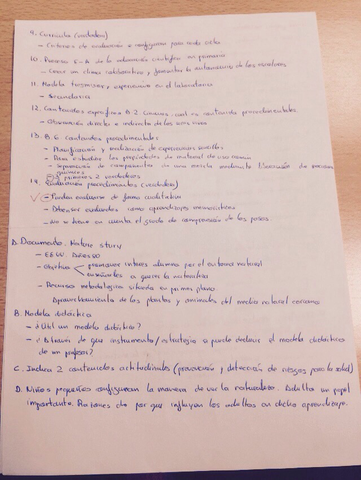 9. Currículo (verdadero)
- Criterios de evaluación se configuran para cada ciclo
10. Proceso E-A de la educación científica en primaria
- Crear un clima colaborativo, y fomentar la autonomía de los escolares
11. Modelo transmisor, experiencias en el laboratorio
- Secundaria
12. Contenidos específicos B.2 Ciencias, cuál es contenido procedimentales
- Observación directa e indirecta de los seres vivos
13. B.6 Contenidos procedimentales
- Planificación y realización de experiencias sencillas
- Para estudiar las propiedades de material de uso común
- Separación de componentes de una mezcla mediante
2 primeros 2 verdaderas
14. Evaluación procedimientos (verdadero)
- Pueden evaluarse de forma cualitativa
- Obtener evaluados como aprendizaje memorístico
- No se tiene en cuenta el grado de comprensión de los pasos
A. Documento. Nature story
- EEUU
- Objetivo promover interés alumno por el entorno natural
enseñarles a querer la naturaleza
- Recurso metodológico situado en primer plano
Aprovechamiento de las plantas y animales del medio natural cercano
B. Modelo didáctico
- ¿Útil un modelo didáctico?
- ¿A través de qué instrumento/estrategia se puede deducir el modelo didáctico
de un profesor?
C. Indica 2 contenidos actitudinales (prevención y detección de riesgos para la salud)
D. Niños pequeños configuran la manera de ver la naturaleza. Adulto un papel
importante. Razones de por qué influyen los adultos en dicho aprendizaje.